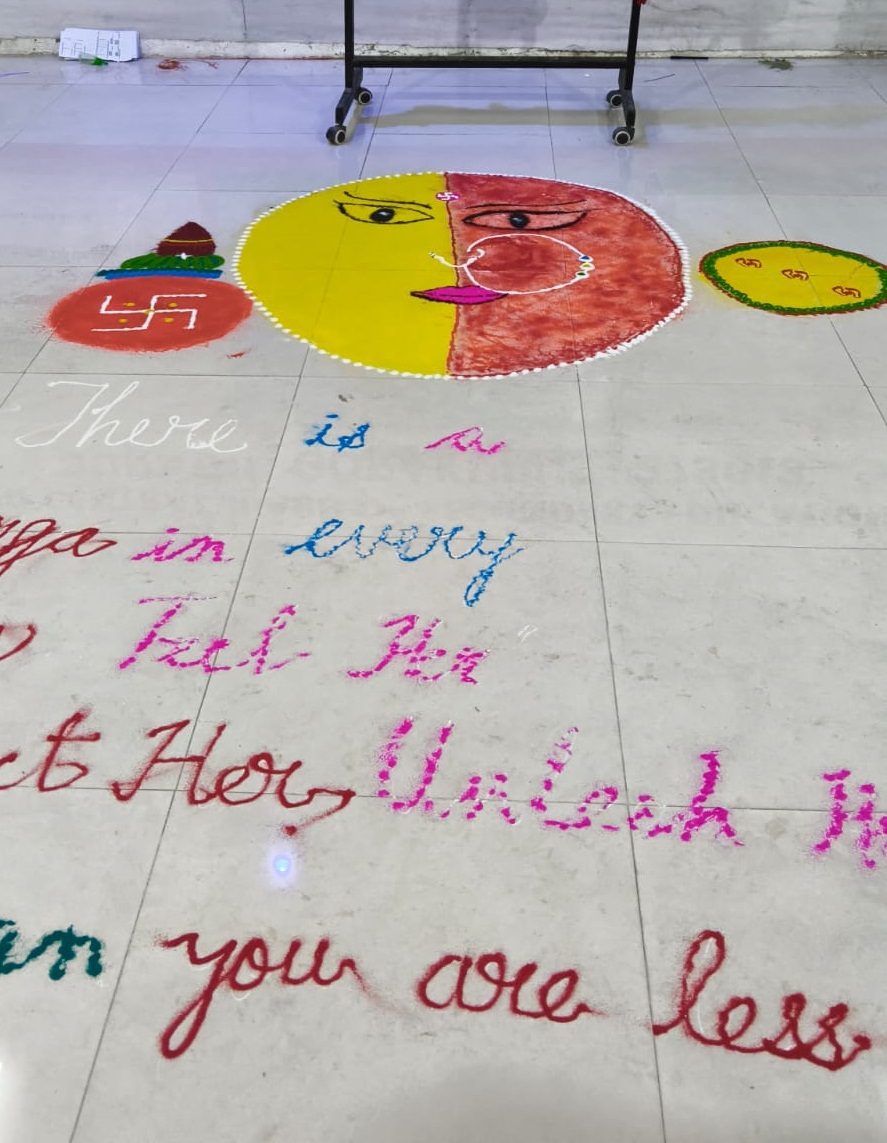 There is a
ga in every
Feel Her"
ct Her, Unleash H
an you are less